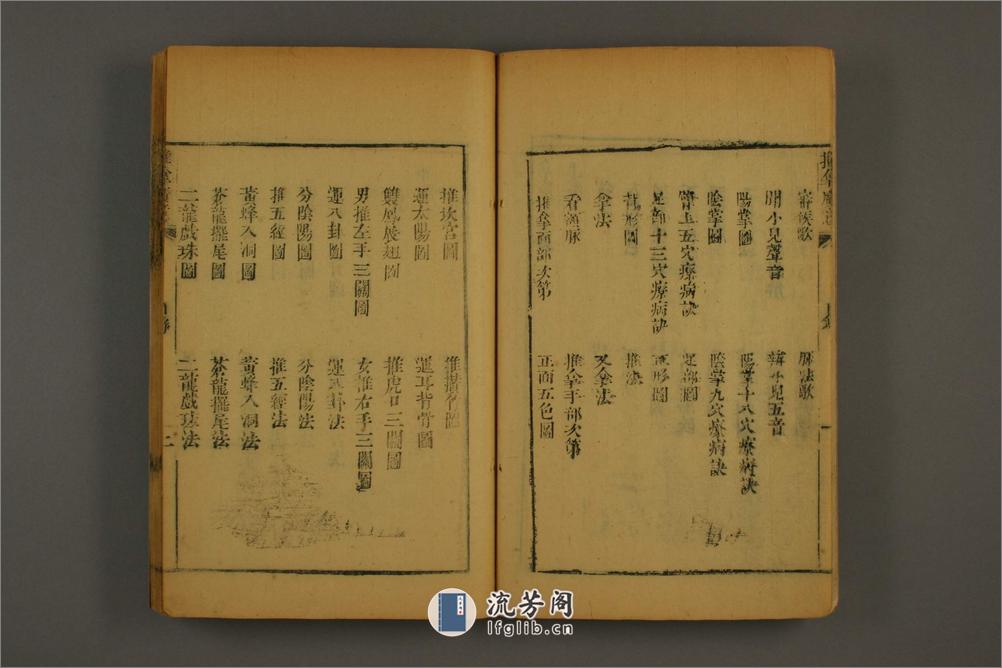 審候歌 脈法歌
聞小兒聲音 辨小兒五音
陽掌圖 陽掌十八穴療病訣
陰掌圖 陰掌九穴療病訣
臂上五穴療病訣 足部圖
足部十三穴療病訣 形圖
形圖 推法
拿法 又拿法
看額脉 推拿手部次第
推拿面部次第 正面五色圖
推坎宮圖 推攢竹圖
運太陽圖 運耳背骨圖
雙鳳展翅圖 推虎口三關圖
男推左手三關圖 女推右手三關圖
運八卦圖 運八卦法
分陰陽圖 分陰陽法
推五經圖 推五經法
黃蜂入洞圖 黃蜂入洞法
蒼龍擺尾圖 蒼龍擺尾法
二龍戲珠圖 二龍戲珠法
流芳阁
lfglib.cn